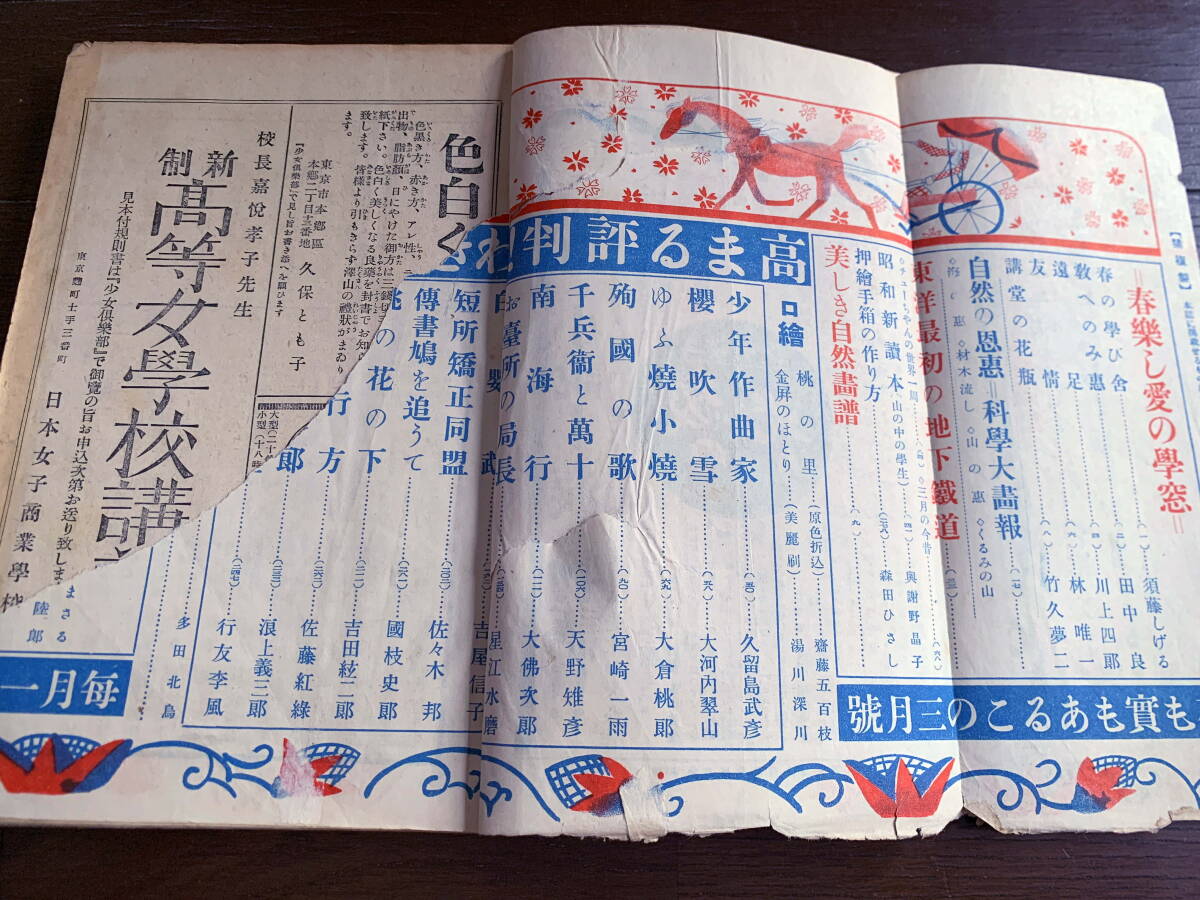 【號複製】
=春樂し愛の學窓=
春の學び舍
教へのみ惠
遠足
友情
講堂の花瓶
(一)
須藤しげる
(二)
田中良
(四)
川上四郎
(六)
林唯一
(八)
竹久夢二
自然の恩惠=科學大畫報
(一七)
◇材木流し◇山の惠◇くるみの山
東洋最初の地下鐵道
(三三)
◇チューちやんの世界一周
◇三月の今昔
昭和新讀本
(山の中の學生)
(四一)
與謝野晶子
押繪手箱の作り方
(七八)
森田ひさし
美しき自然畫譜
(九)
も實もあるこの三月號
高まる評判
口繪
桃の里
(原色折込)
齋藤五百枝
金屏のほとり
(美麗刷)
湯川深川
少年作曲家
(五〇)
久留島武彦
櫻吹雪
大河内翠山
ゆふ燒小燒
(六九)
大倉桃郎
殉國の歌
(九〇)
宮崎一雨
千兵衞と萬十
(一二六)
天野雉彦
南海行
(一一二)
大佛次郎
お臺所の局長
星江水磨
白嬰武
吉屋信子
短所矯正同盟
(一三二)
佐々木邦
傳書鳩を追うて
(一六二)
國枝史郎
桃の花の下
(二一二)
吉田絃二郎
行方
佐藤紅綠
郎
浪上義三郎
(二四七)
行友李風
多田北烏
まさる
陸郎
毎月一
色白く
色黒き方、赤き方、アレ性、ニ
出物、脂肪顏、日にやけた御方は三錢切
紙下さい。色白く美しくなる良藥を封書でお知ら
致します。皆樣より引もきらず澤山の禮狀がまゐり
ます。
東京市本鄕區
本鄕二丁目三番地
久保とも子
『少女倶樂部』で見し旨お書き添へを願ひます
大型(二十
小型(十八時
校長嘉悅孝子先生
新制
高等女學校講
見本付規則書は『少女俱樂部』で御覽の旨お申込次第お送り致します
東京麴町土手三番町
日本女子商業學校